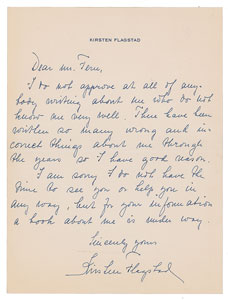 KIRSTEN FLAGSTAD
Dear Mr. Fern,
I do not approve at all of any-
body writing about me who do not
know me very well. There have been
written so many wrong and in-
correct things about me through
the years so I have good reason.
I am sorry I do not have the
time to see you or help you in
any way, but for your information
a book about me is under way.
Sincerely yours
Kirsten Flagstad